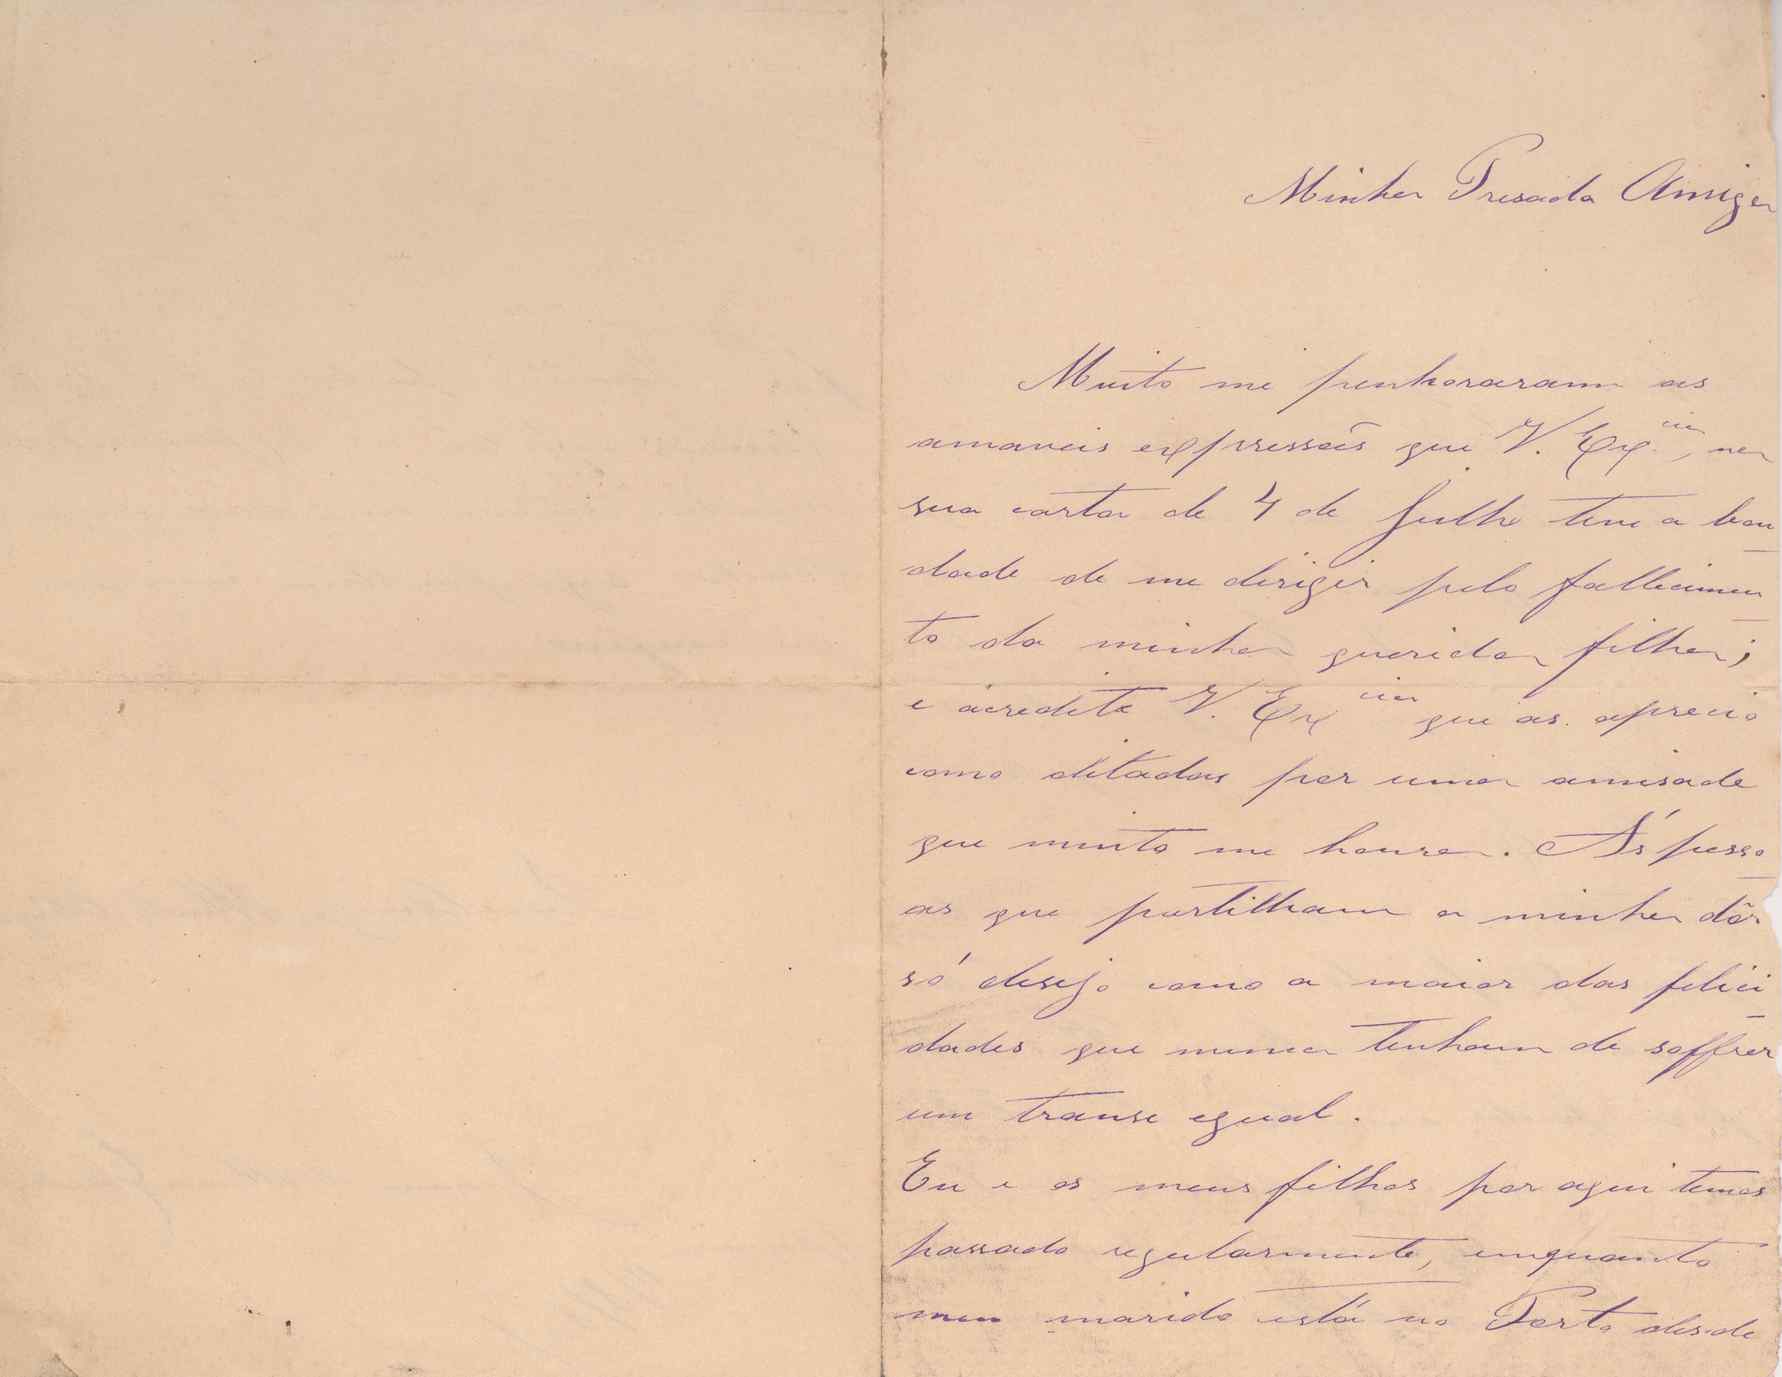 Minha Presada Amiga
Muito me penhoraram as
amaveis expressões que V. Ex.cia, na
sua carta de 4 de Julho teve a bon
dade de me dirigir pelo fallecimen
to da minha querida filha;
e acredite V. Excia que as aprecio
como ditadas por uma amisade
que muito me honra. Ás pesso
as que partilham a minha dôr
só desejo como a maior das felici
dades que nunca tenham de soffrer
um transe egual.
Eu e os meus filhos por aqui temos
passado regularmente, emquanto
meu marido está no Porto desde